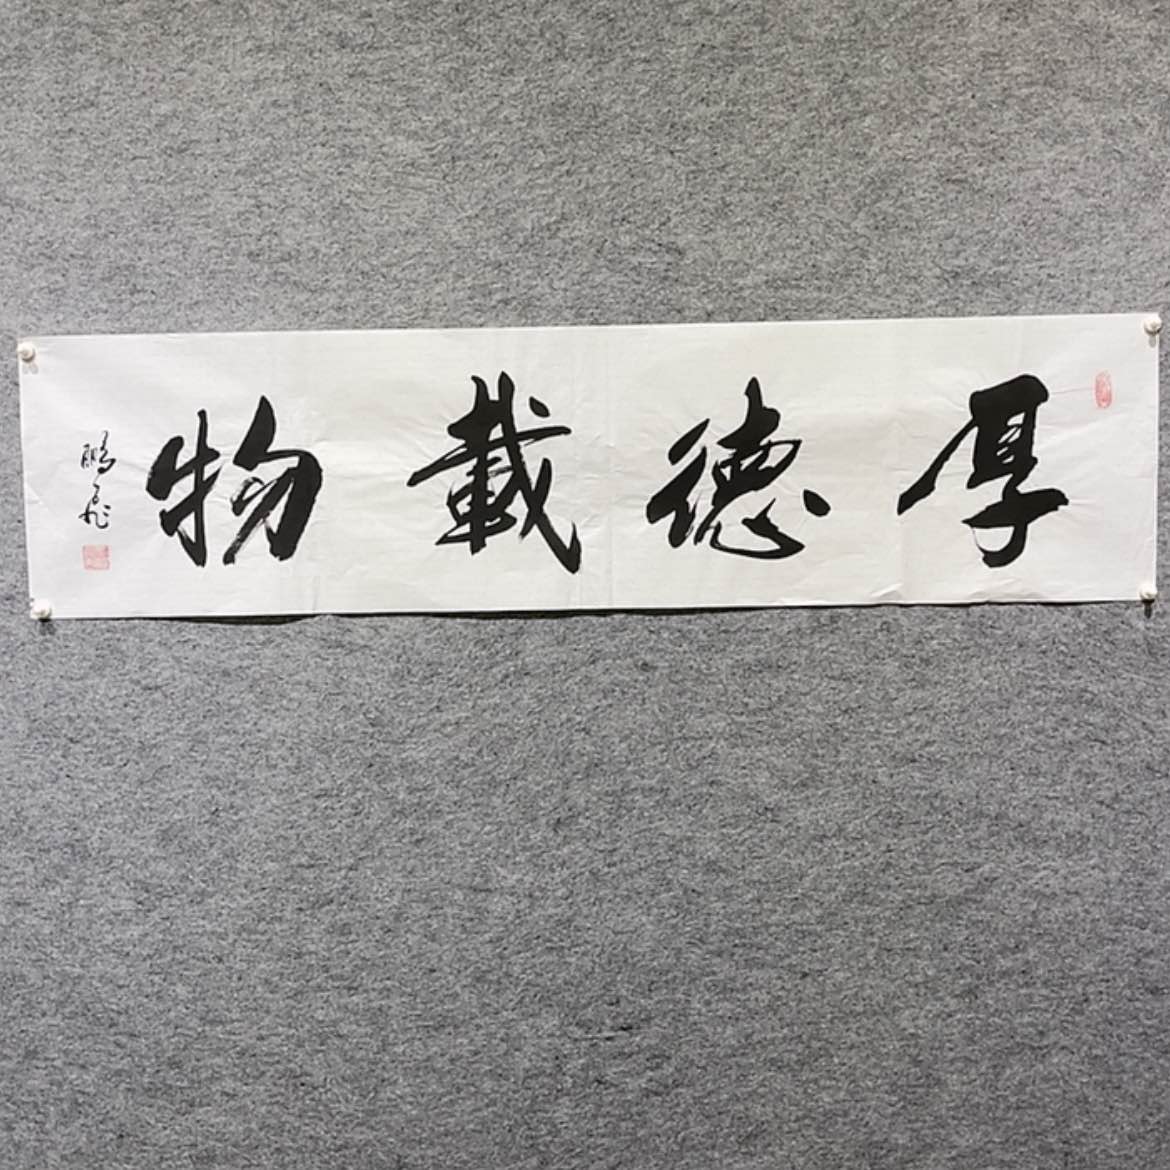 厚德載物
鵬飛